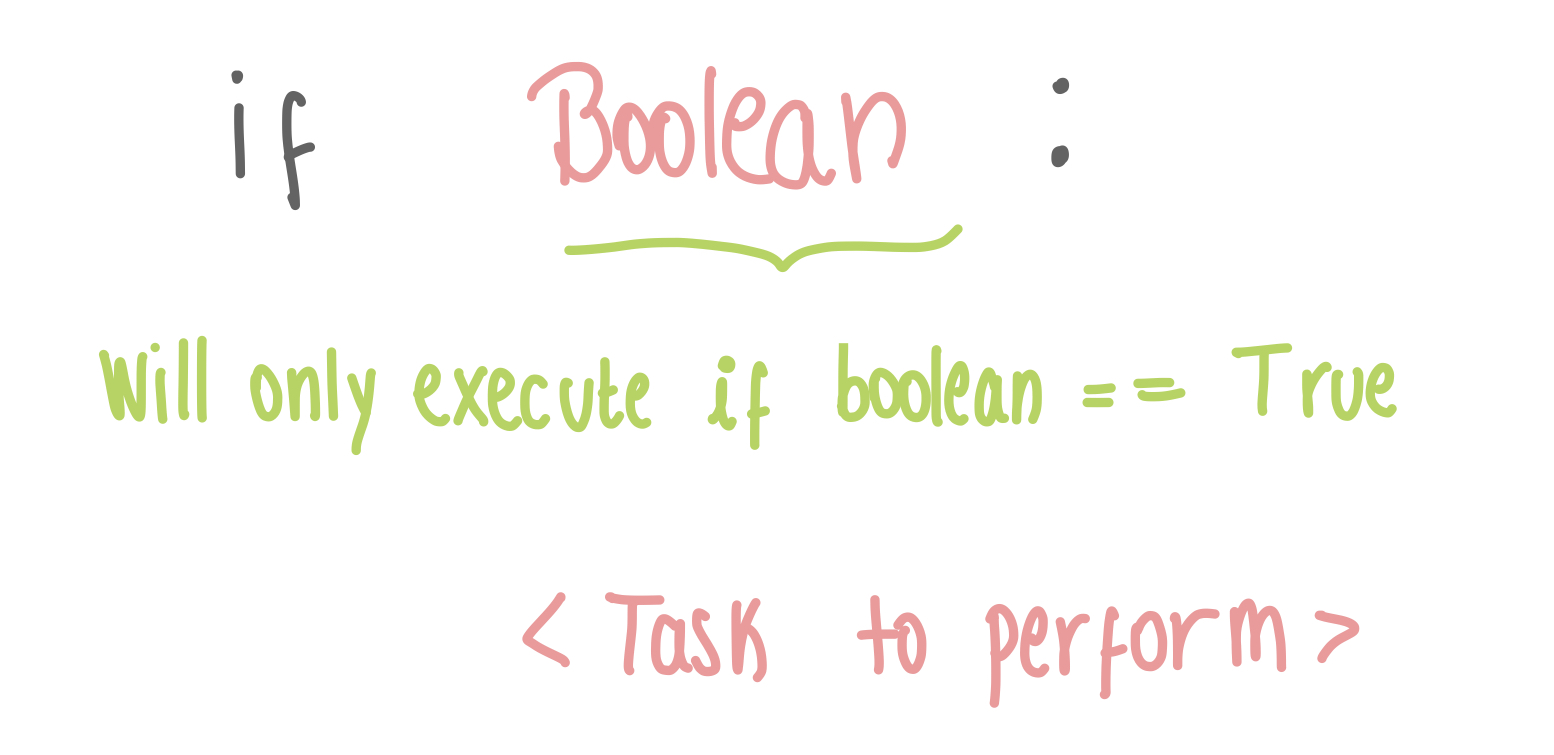 if Boolean :
Will only execute if boolean == True
< Task to perform >